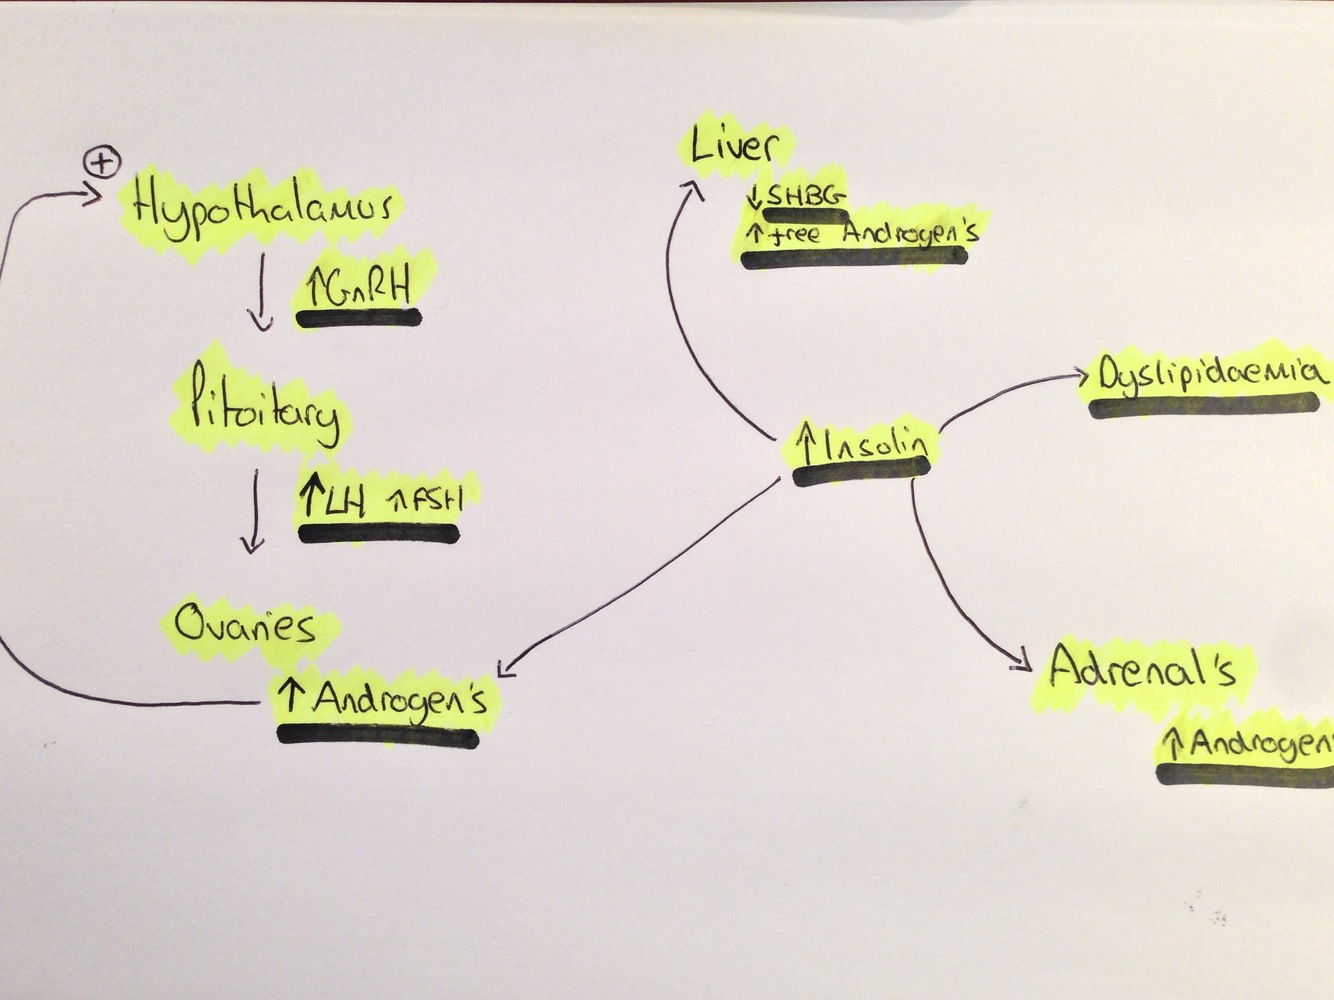 +
Hypothalamus
↑GnRH
Pitoitary
↑LH ↑FSH
Ovaries
↑ Androgen's
Liver
↓SHBG
↑ free Androgen's
↑Insolin
Dyslipidaemia
Adrenal's
↑Androgen's